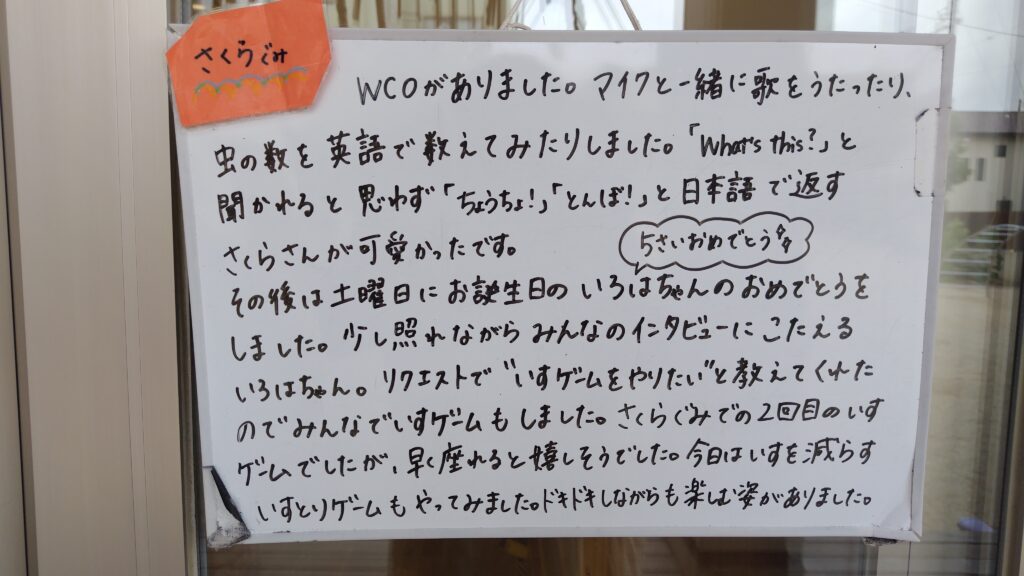 さくらぐみ
WCOがありました。マイクと一緒に歌をうたったり、
虫の数を英語で数えてみたりしました。「What's this?」と
聞かれると思わず「ちょうちょ!」「とんぼ!」と日本語で返す
さくらさんが可愛かったです。
5さいおめでとう
その後は土曜日にお誕生日のいろはちゃんのおめでとうを
しました。少し照れながらみんなのインタビューにこたえる
いろはちゃん。リクエストで"いすゲームをやりたい"と教えてくれた
のでみんなでいすゲームもしました。さくらぐみでの2回目のいす
ゲームでしたが、早く座れると嬉しそうでした。今日はいすを減らす
いすとりゲームもやってみました。ドキドキしながらも楽しむ姿がありました。